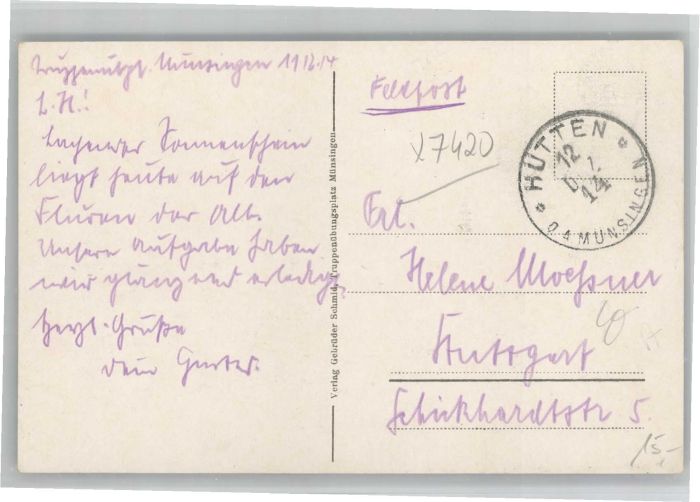 Truppenübpl. Münsingen 19 12.14
L. H.!
Lachender Sonnenschein
liegt heute auf den
Fluren der Alb.
Unsere Aufgabe haben
wir glänzend erledigt,
Herzl. Grüße
Dein Gustav.
Verlag Gebrüder Schmid, Truppenübungsplatz Münsingen.
Feldpost
x7420
HÜTTEN
12
1.
14
O.A MÜNSINGEN
Frl.
Helene Moessner
Stuttgart
Schickhardtstr 5.
15-